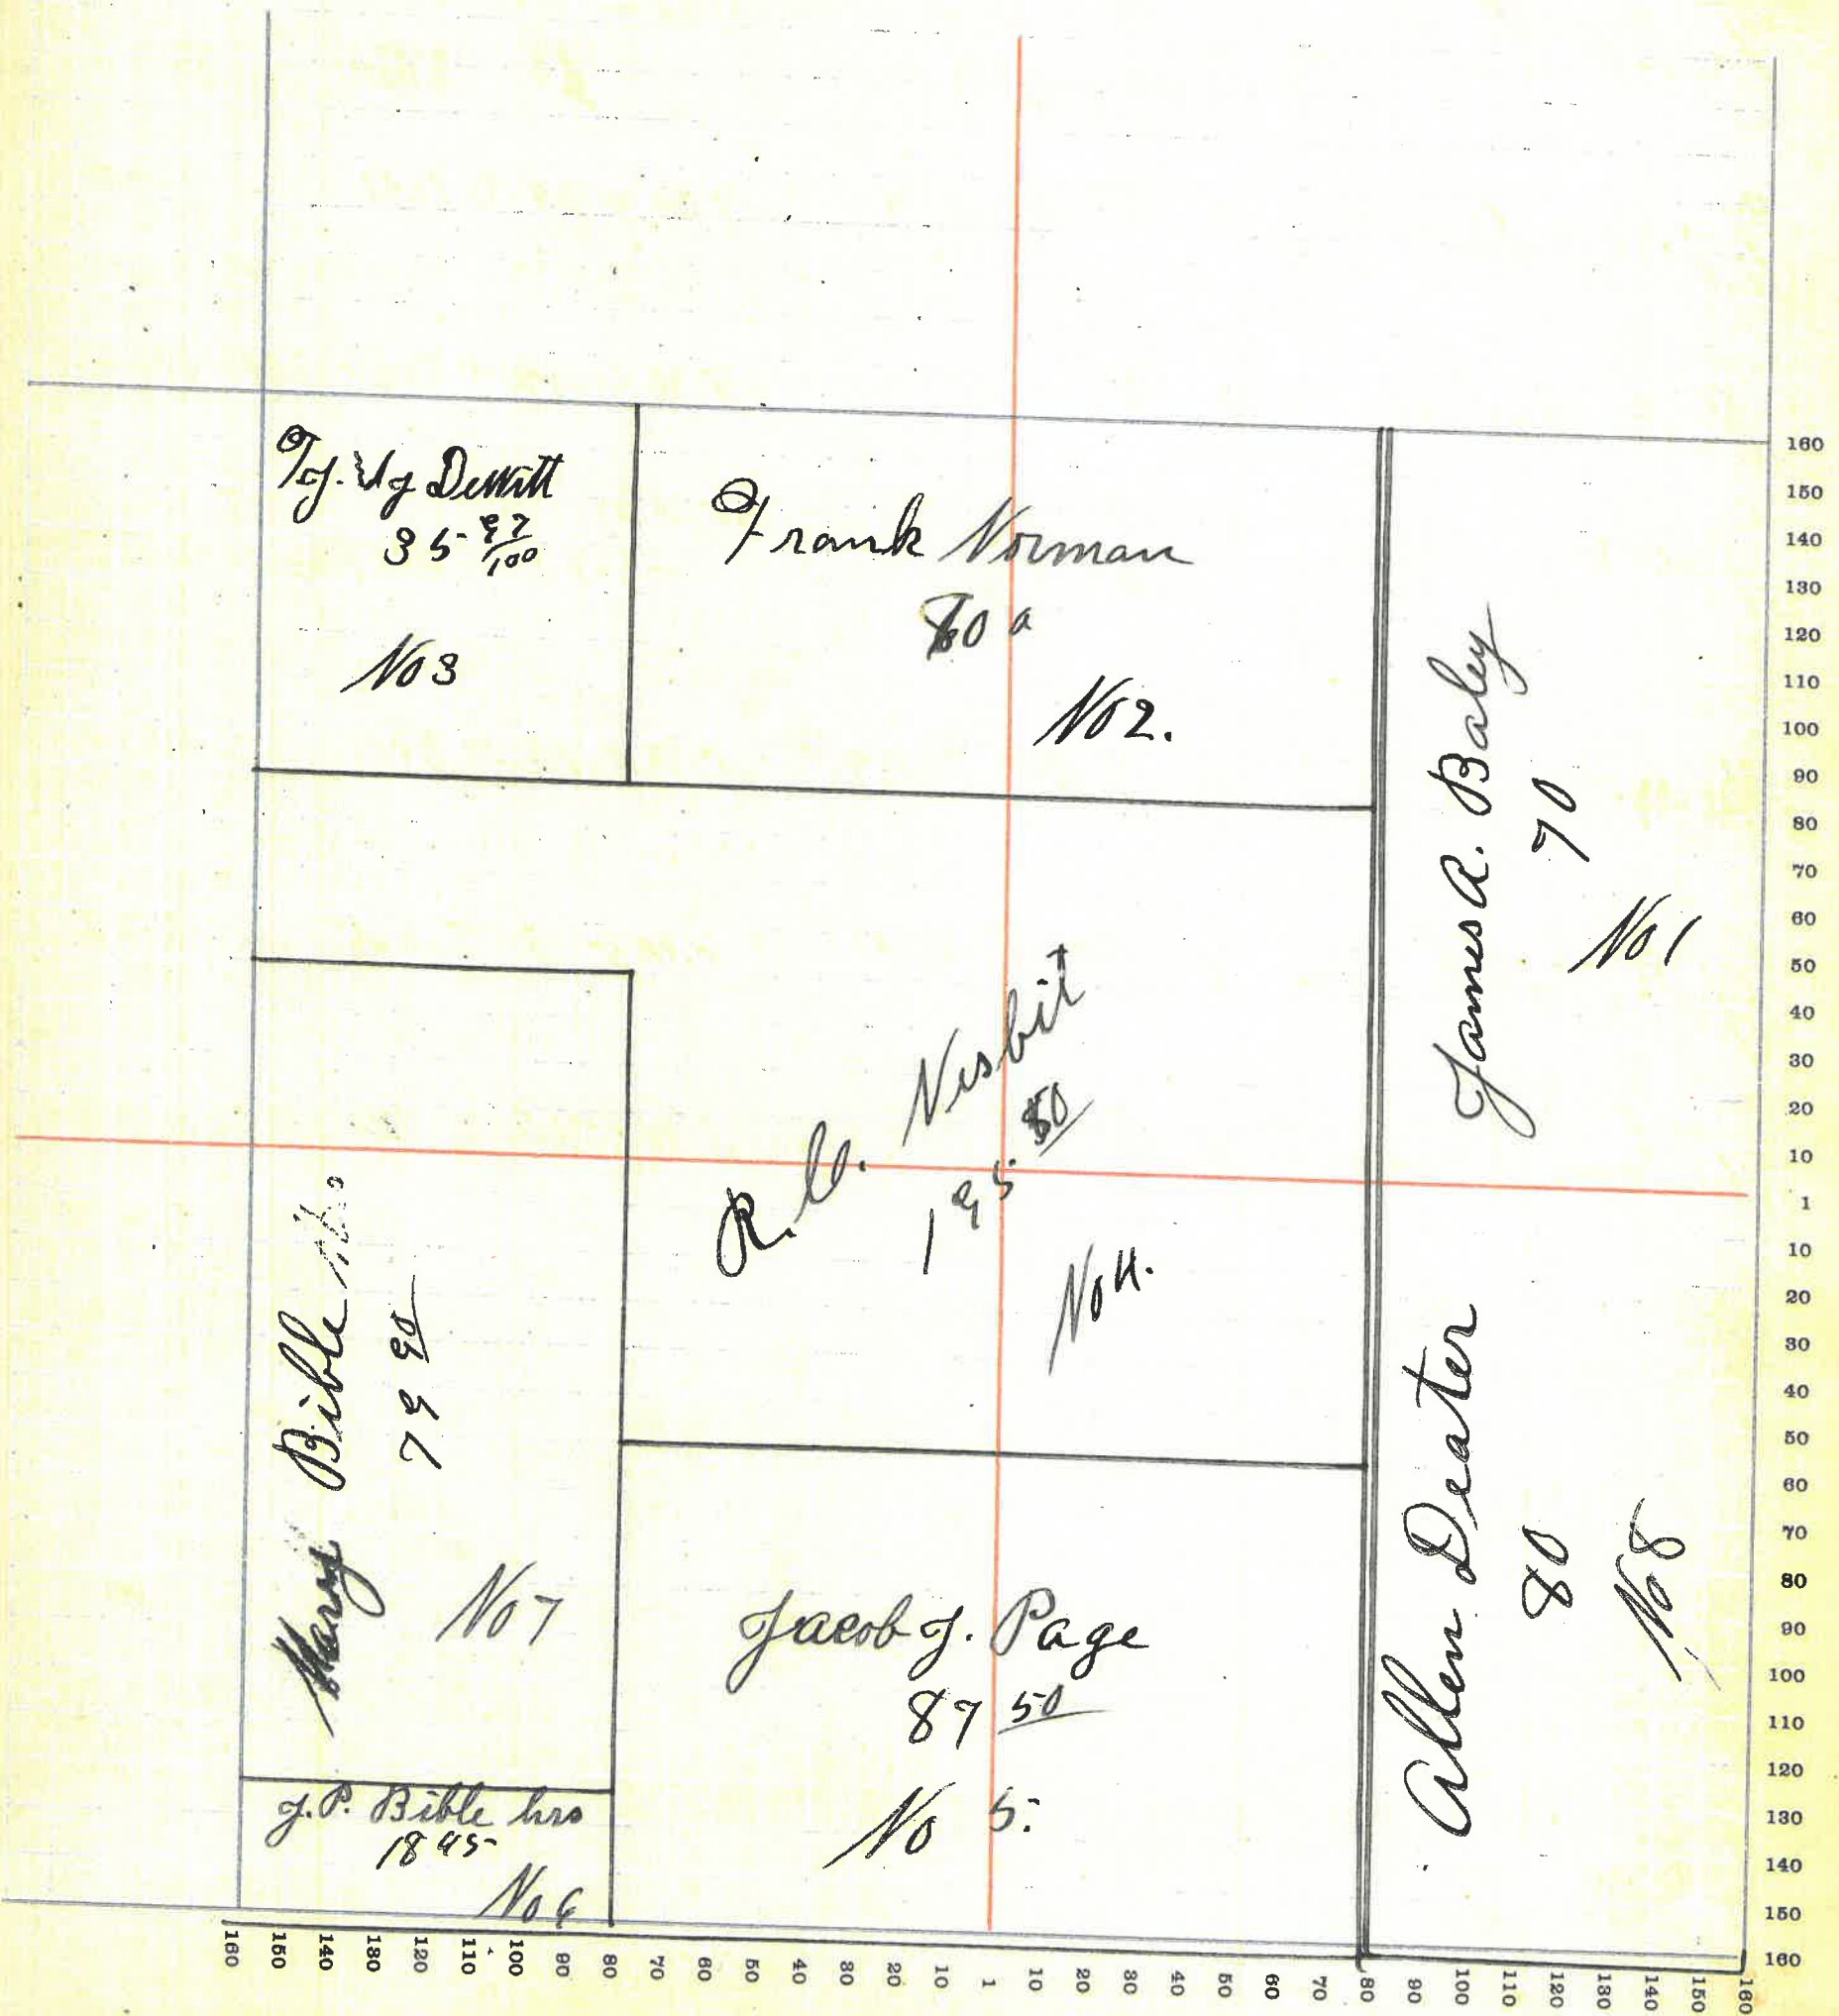 DeWitt
35 97/100
No 3
Frank Norman
80 a
No 2.
James A. Baley
70
No 1
R. C. Nesbit
195 50
No 4.
Mary Bible hrs
79 90
No 7
Jacob J. Page
87 50
No 5.
Allen Deater
80
No 8
J. P. Bible hrs
18 45
No 6
160
150
140
130
120
110
100
90
80
70
60
50
40
30
20
10
1
10
20
30
40
50
60
70
80
90
100
110
120
130
140
150
160
160 150 140 130 120 110 100 90 80 70 60 50 40 30 20 10 1 10 20 30 40 50 60 70 80 90 100 110 120 130 140 150 160